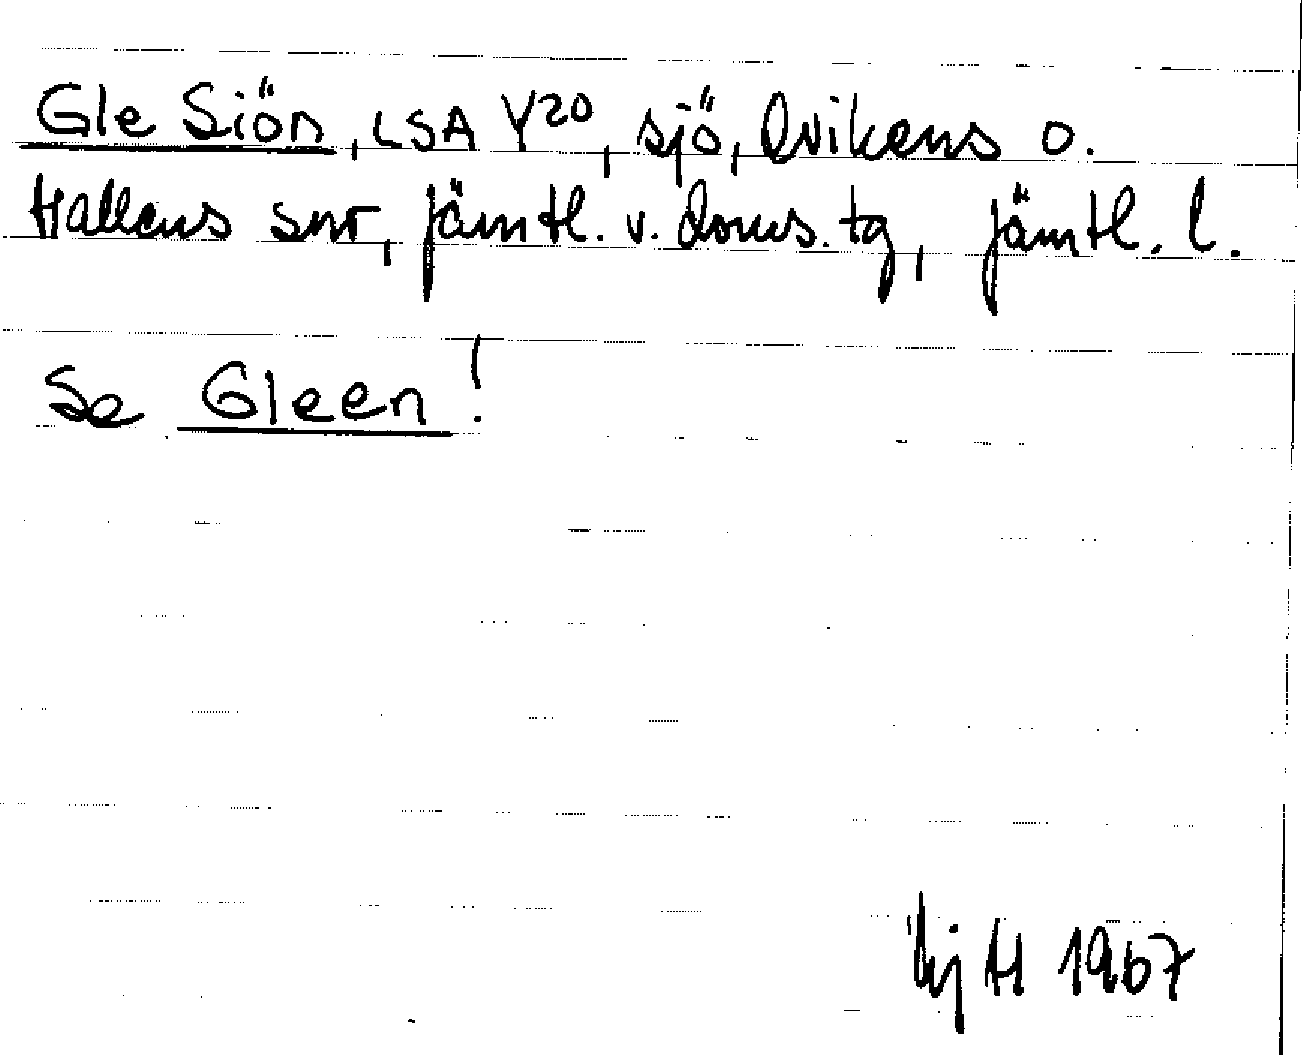 Gle Siön, LSA Y20, sjö, Ovikens o.
Hallens snr, Jämtl. v. doms. tg, Jämtl. l.
Se Gleen!
H 1967